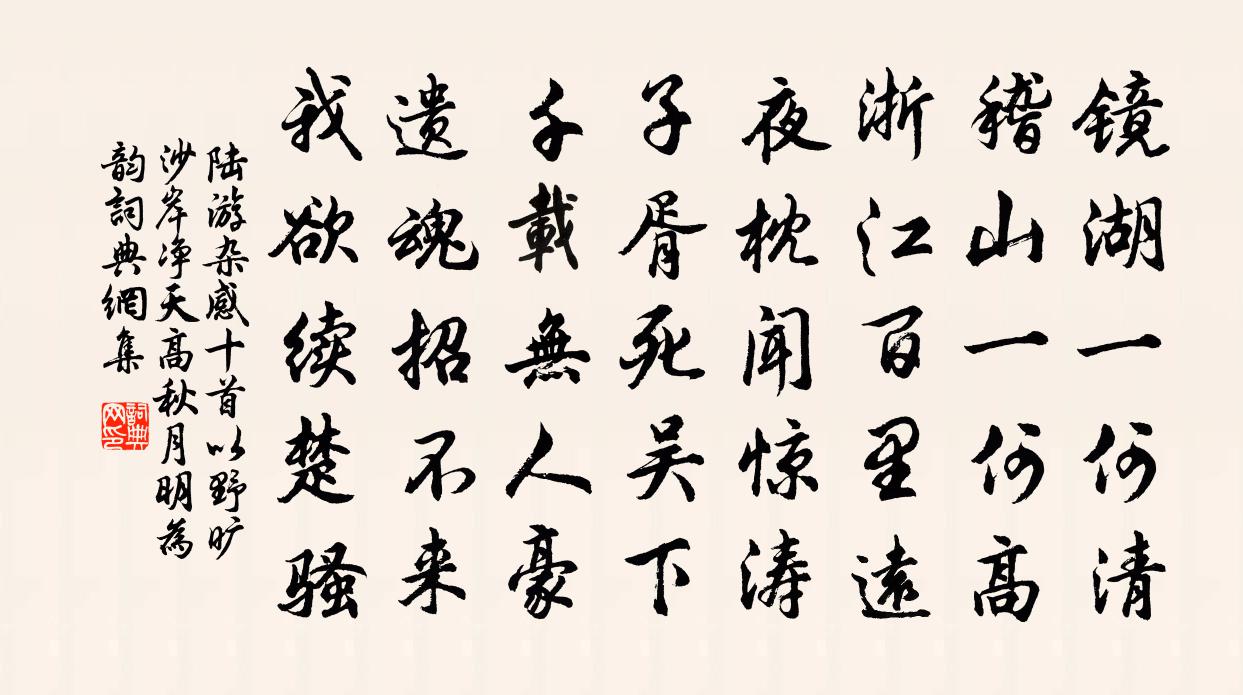 镜湖一何清
稽山一何高
浙江百里遠
夜枕闻惊涛
子胥死吴下
千載無人豪
遗魂招不来
我欲续楚骚
陆游杂感十首以野旷
沙岸净天高秋月明為
韵詞典網集
詞典
网印